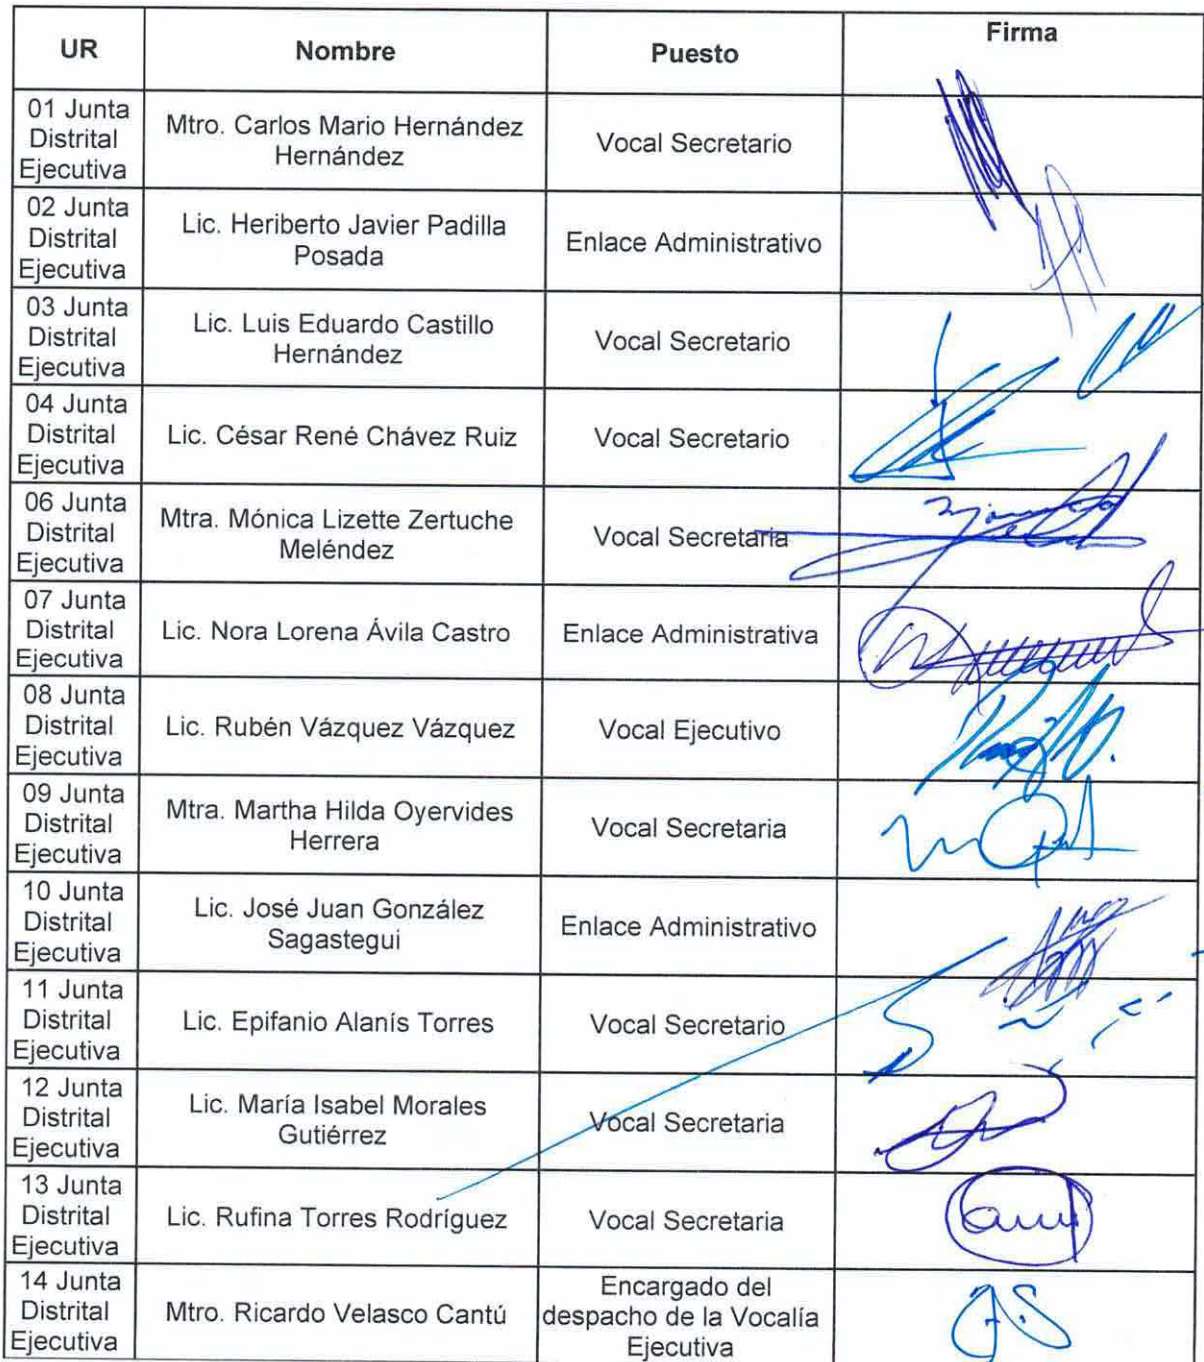 UR
Nombre
Puesto
Firma
01 Junta
Distrital
Ejecutiva
Mtro. Carlos Mario Hernández
Hernández
Vocal Secretario
02 Junta
Distrital
Ejecutiva
Lic. Heriberto Javier Padilla
Posada
Enlace Administrativo
03 Junta
Distrital
Ejecutiva
Lic. Luis Eduardo Castillo
Hernández
Vocal Secretario
04 Junta
Distrital
Ejecutiva
Lic. César René Chávez Ruiz
Vocal Secretario
06 Junta
Distrital
Ejecutiva
Mtra. Mónica Lizette Zertuche
Meléndez
Vocal Secretaria
07 Junta
Distrital
Ejecutiva
Lic. Nora Lorena Ávila Castro
Enlace Administrativa
08 Junta
Distrital
Ejecutiva
Lic. Rubén Vázquez Vázquez
Vocal Ejecutivo
09 Junta
Distrital
Ejecutiva
Mtra. Martha Hilda Oyervides
Herrera
Vocal Secretaria
10 Junta
Distrital
Ejecutiva
Lic. José Juan González
Sagastegui
Enlace Administrativo
11 Junta
Distrital
Ejecutiva
Lic. Epifanio Alanís Torres
Vocal Secretario
12 Junta
Distrital
Ejecutiva
Lic. María Isabel Morales
Gutiérrez
Vocal Secretaria
13 Junta
Distrital
Ejecutiva
Lic. Rufina Torres Rodríguez
Vocal Secretaria
14 Junta
Distrital
Ejecutiva
Mtro. Ricardo Velasco Cantú
Encargado del
despacho de la Vocalía
Ejecutiva